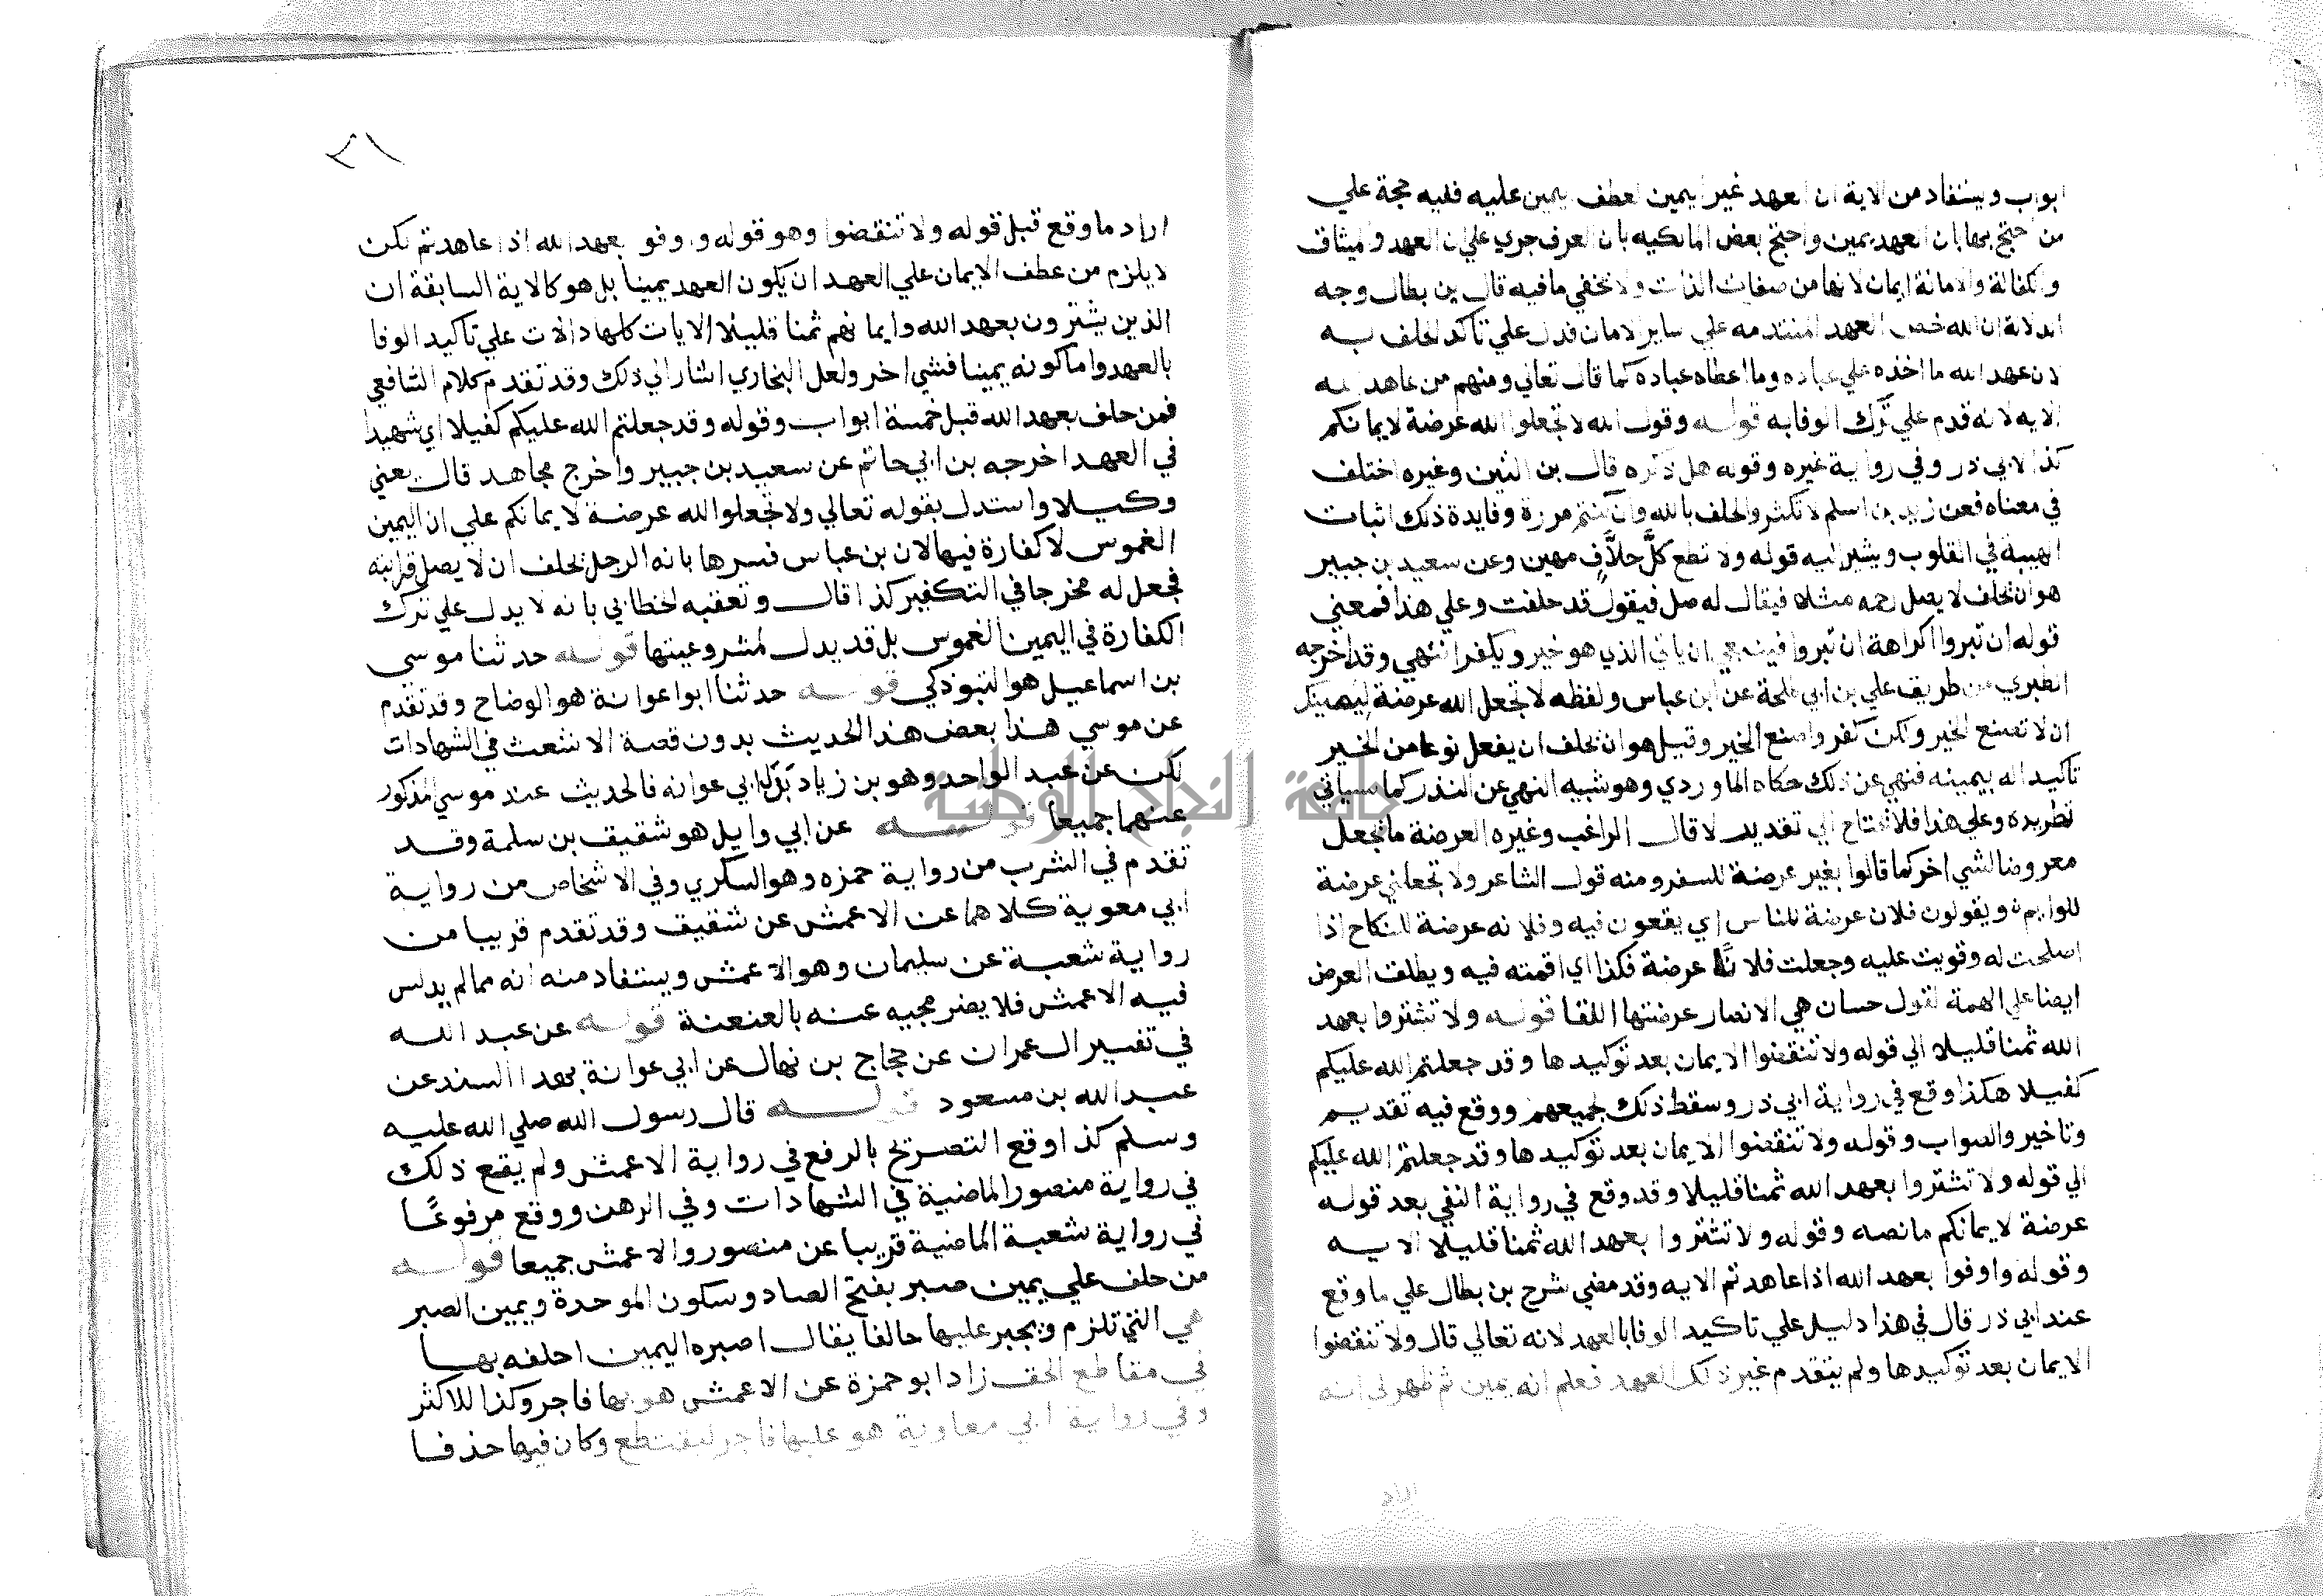 ابواب ويستفاد من الاية ان العهد غير اليمين لعطف اليمين عليه ففيه حجة علي
من احتج بها بان العهد يمين واحتج بعض المالكيه بان العرف جري علي ان العهد والميثاق
والكفالة والامانة ايمان لانها من صفات الذات ولا يخفي ما فيه قال بن بطال وجه
الدلالة ان الله خص العهد بالتقدمه علي ساير الايمان فدل علي تاكد الحلف به
لان عهد الله ما اخذه علي عباده وما اعطاه عباده كما قال تعالي ومنهم من عاهد الله
الايه لانه قدم علي ترك الوفا به قوله وقول الله لا تجعلوا الله عرضة لايمانكم
كذا لابي ذر وفي رواية غيره وقوله جل ذكره قال بن التين وغيره اختلف
في معناه فعن زيد بن اسلم لا تكثروا الحلف بالله وان كنتم بررة وفايدة ذلك اثبات
الهيبة في القلوب ويشير اليه قوله ولا تطع كل حلاف مهين وعن سعيد بن جبير
هو ان يحلف لا يصل رحمه مثلا فيقال له صل فيقول قد حلفت وعلي هذا فمعني
قوله ان تبروا كراهة ان تبروا فينبغي ان ياتي الذي هو خير ويكفر انتهي وقد اخرجه
الطبري من طريق علي بن ابي طلحة عن ابن عباس ولفظه لا تجعل الله عرضة ليمينك
ان لا تصنع الخير ولكن كفر واصنع الخير وقيل هو ان يحلف ان يفعل نوعا من الخير
تاكيدا له بيمينه فنهي عن ذلك حكاه الماوردي وهو شبيه النهي عن النذر كما سياتي
نظيره وعلي هذا فلا يحتاج الي تقدير لا قال الراغب وغيره العرضة ما يجعل
معروضا لشي اخر كما قالوا بعير عرضة للسفر ومنه قول الشاعر ولا تجعلني عرضة
للوايم ويقولون فلان عرضة للناس اي يقعون فيه وفلانه عرضة للنكاح اذا
اصلحت له وقويت عليه وجعلت فلانا عرضة فكذا اي اقمته فيه ويطلق العرض
ايضا علي الهمة لقول حسان هي الانصار عرضتها اللقا قوله ولا تشتروا بعهد
الله ثمنا قليلا الي قوله ولا تنقضوا الايمان بعد توكيدها وقد جعلتم الله عليكم
كفيلا هكذا وقع في رواية ابي ذر وسقط ذلك لجميعهم ووقع فيه تقديم
وتاخير والصواب وقوله ولا تنقضوا الايمان بعد توكيدها وقد جعلتم الله عليكم
الي قوله ولا تشتروا بعهد الله ثمنا قليلا وقد وقع في رواية النفي بعد قوله
عرضة لايمانكم ما نصه وقوله ولا تشتروا بعهد الله ثمنا قليلا الايه
وقوله واوفوا بعهد الله اذا عاهدتم الايه وقد مضي شرح بن بطال علي ما وقع
عند ابي ذر قال في هذا دليل علي تاكيد الوفا بالعهد لانه تعالي قال ولا تنقضوا
الايمان بعد توكيدها ولم يتقدم غير ذلك العهد فعلم انه يمين ثم ظهر لي انه
اراد
٢٦
اراد ما وقع قبل قوله ولا تنقضوا وهو قوله واوفوا بعهد الله اذا عاهدتم لكن
لا يلزم من عطف الايمان علي العهد ان يكون العهد يمينا بل هو كالاية السابقة ان
الذين يشترون بعهد الله وايمانهم ثمنا قليلا الايات كلها دالات علي تاكيد الوفا
بالعهد واما كونه يمينا فشي اخر ولعل البخاري اشار الي ذلك وقد تقدم كلام الشافعي
فمن حلف بعهد الله قبل خمسة ابواب وقوله وقد جعلتم الله عليكم كفيلا اي شهيدا
في العهد اخرجه بن ابي حاتم عن سعيد بن جبير واخرج مجاهد قال يعني
وكيلا واستدل بقوله تعالي ولا تجعلوا الله عرضة لايمانكم علي ان اليمين
الغموس لا كفارة فيها لان بن عباس فسرها بانه الرجل يحلف ان لا يصل قرابته
فجعل له مخرجا في التكفير كذا قال وتعقبه الخطابي بانه لا يدل علي ترك
الكفارة في اليمين الغموس بل قد يدل لمشروعيتها قوله حدثنا موسي
بن اسماعيل هو التبوذكي قوله حدثنا ابوا عوانة هو الوضاح وقد تقدم
عن موسي هذا بعض هذا الحديث بدون قصة الاشعث في الشهادات
لكن عن عبد الواحد وهو بن زياد بدل ابي عوانه فالحديث عند موسي المذكور
عنهما جميعا قوله عن ابي وايل هو شقيق بن سلمة وقد
تقدم في الشرب من رواية حمزه وهو السكري وفي الاشخاص من رواية
ابي معوية كلاهما عن الاعمش عن شقيق وقد تقدم قريبا من
رواية شعبة عن سليمان وهو الاعمش ويستفاد منه انه مما لم يدلس
فيه الاعمش فلا يضر مجيه عنه بالعنعنة قوله عن عبد الله
في تفسير ال عمران عن حجاج بن نهال عن ابي عوانة بهذا السند عن
عبد الله بن مسعود قوله قال رسول الله صلي الله عليه
وسلم كذا وقع التصريح بالرفع في رواية الاعمش ولم يقع ذلك
في رواية منصور الماضية في الشهادات وفي الرهن ووقع مرفوعًا
في رواية شعبة الماضية قريبا عن منصور والاعمش جميعا قوله
من حلف علي يمين صبر بفتح الصاد وسكون الموحدة ويمين الصبر
هي التي تلزم ويجبر عليها حالفا يقال اصبره اليمين احلفه بها
في مقاطع الحق زاد ابو حمزة عن الاعمش هو بها فاجر وكذا للاكثر
وفي رواية ابي معاوية هو عليها فاجر ليقتطع وكان فيها حذفا
جامعة النجاح الوطنية